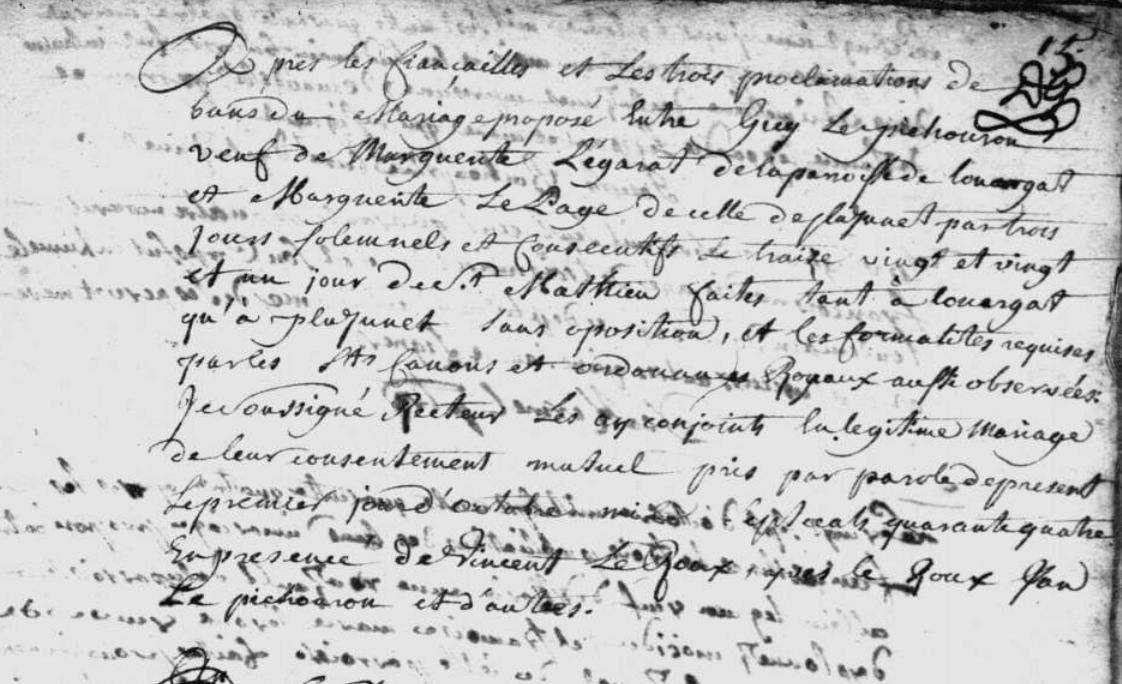 15.
Apres les fiancailles et les trois proclamations de
bans du Mariage proposé Entre Guy Le pichouron
veuf de Marguerite Légarat de la paroisse de louargat
et Marguerite Le Page de celle de plujunet par trois
jours solemnels et consecutifs le traize vingt et vingt
et un jour de St. Mathieu faites tant à louargat
qu'à plujunet sans oposition, et les formalités requises
par les Sts Canons et ordonnances Royaux aussi observées.
Je soussigné Recteur les ay conjoints en legitime Mariage
de leur consentement mutuel pris par parole de present
Le premier jour d'octobre mil sept cents quarante quatre
En presence de Vincent Le Roux, yves le Roux Yan
Le pichouron et d'autres.